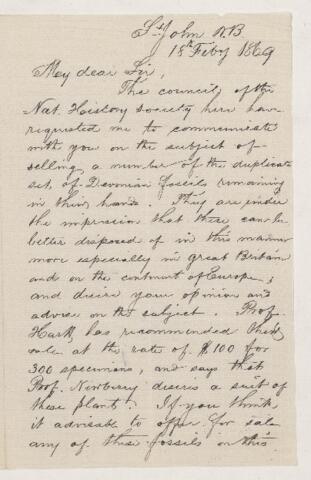 St John N.B.
18th Feby 1869
My dear Sir,
The council of the
Nat. History society here have
requested me to communicate
with you on the subject of
selling a number of the duplicate
set of Devonian fossils remaining
in their hands. They are under
the impression that these can be
better disposed of in this manner
more especially in great Britain
and on the continent of Europe;
and desire your opinion and
advise on the subject. Prof.
Hartt has recommended their
sale at the rate of $100 for
300 specimens, and says that
Prof. Newberry desires a suit of
these plants. If you think
it advisable to offer for sale
any of these fossils on this